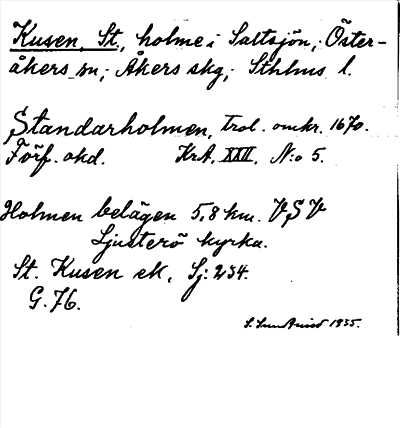 Kusen, St., holme i Saltsjön; Öster-
åkers sn; Åkers skg; Sthlms l.
Standarholmen, trol. omkr. 1670.
Förf. okd. KrA. XXII. N:o 5.
Holmen belägen 5,8 km. VSV
Ljusterö kyrka.
St. Kusen ek, Sj: 234.
G. 76.
S. Sundqvist 1935.